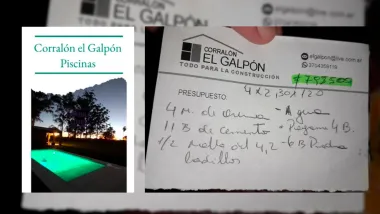 Corralón el Galpón
Piscinas
CORRALÓN
EL GALPÓN
TODO PARA LA CONSTRUCCIÓN
elgalpon@live.com.ar
PRESUPUESTO
4 x 2,30 x 1,20
4 M. de Arena - Agua
11 B de cemento - Pegam 4 B.
1/2 Malla del 4,2 - 6 B Piedra
Ladillos